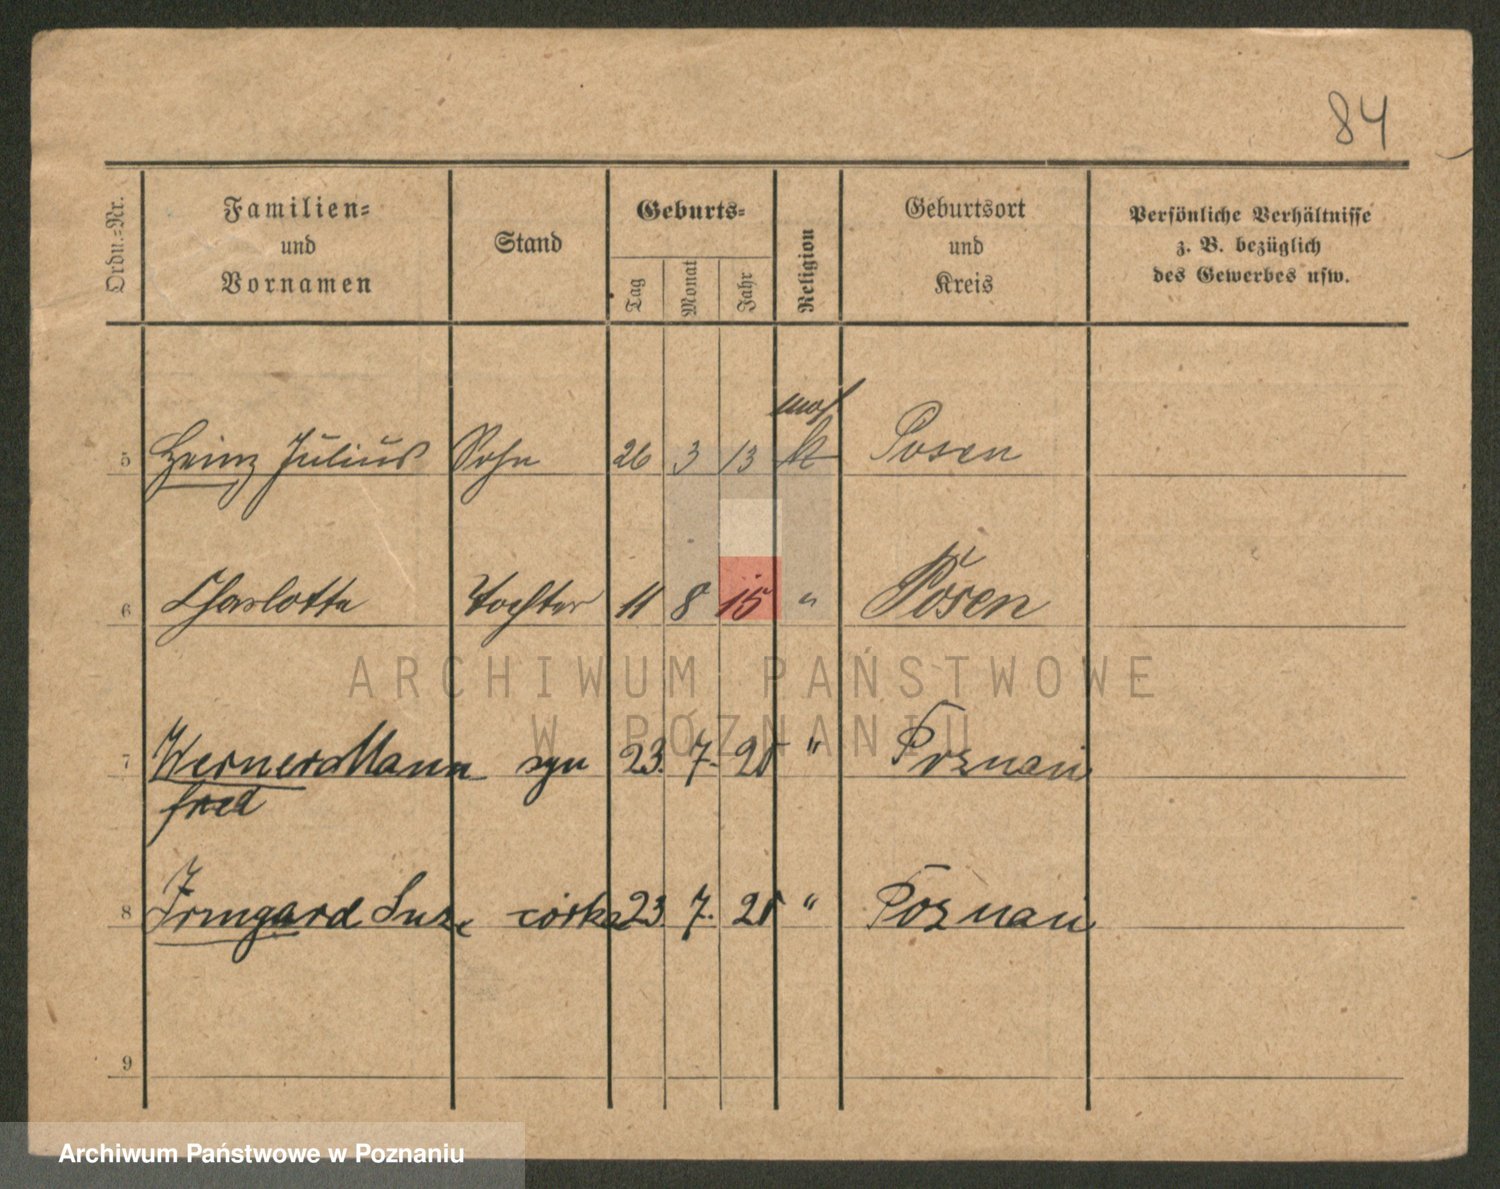 84
Ordn.-Nr.
Familien-
und
Vornamen
Stand
Geburts-
Tag
Monat
Jahr
Religion
Geburtsort
und
Kreis
Persönliche Verhältnisse
z. B. bezüglich
des Gewerbes usw.
mos
5 Heinz Julius Sohn 26 3 13 Posen
6 Charlotte Tochter 11 8 15 " Posen
ARCHIWUM PAŃSTWOWE
W POZNANIU
7 Werner Mann syn 23. 7. 20 " Poznań
fred
8 Irmgard Suze córka 23. 7. 20 " Poznań
9
Archiwum Państwowe w Poznaniu